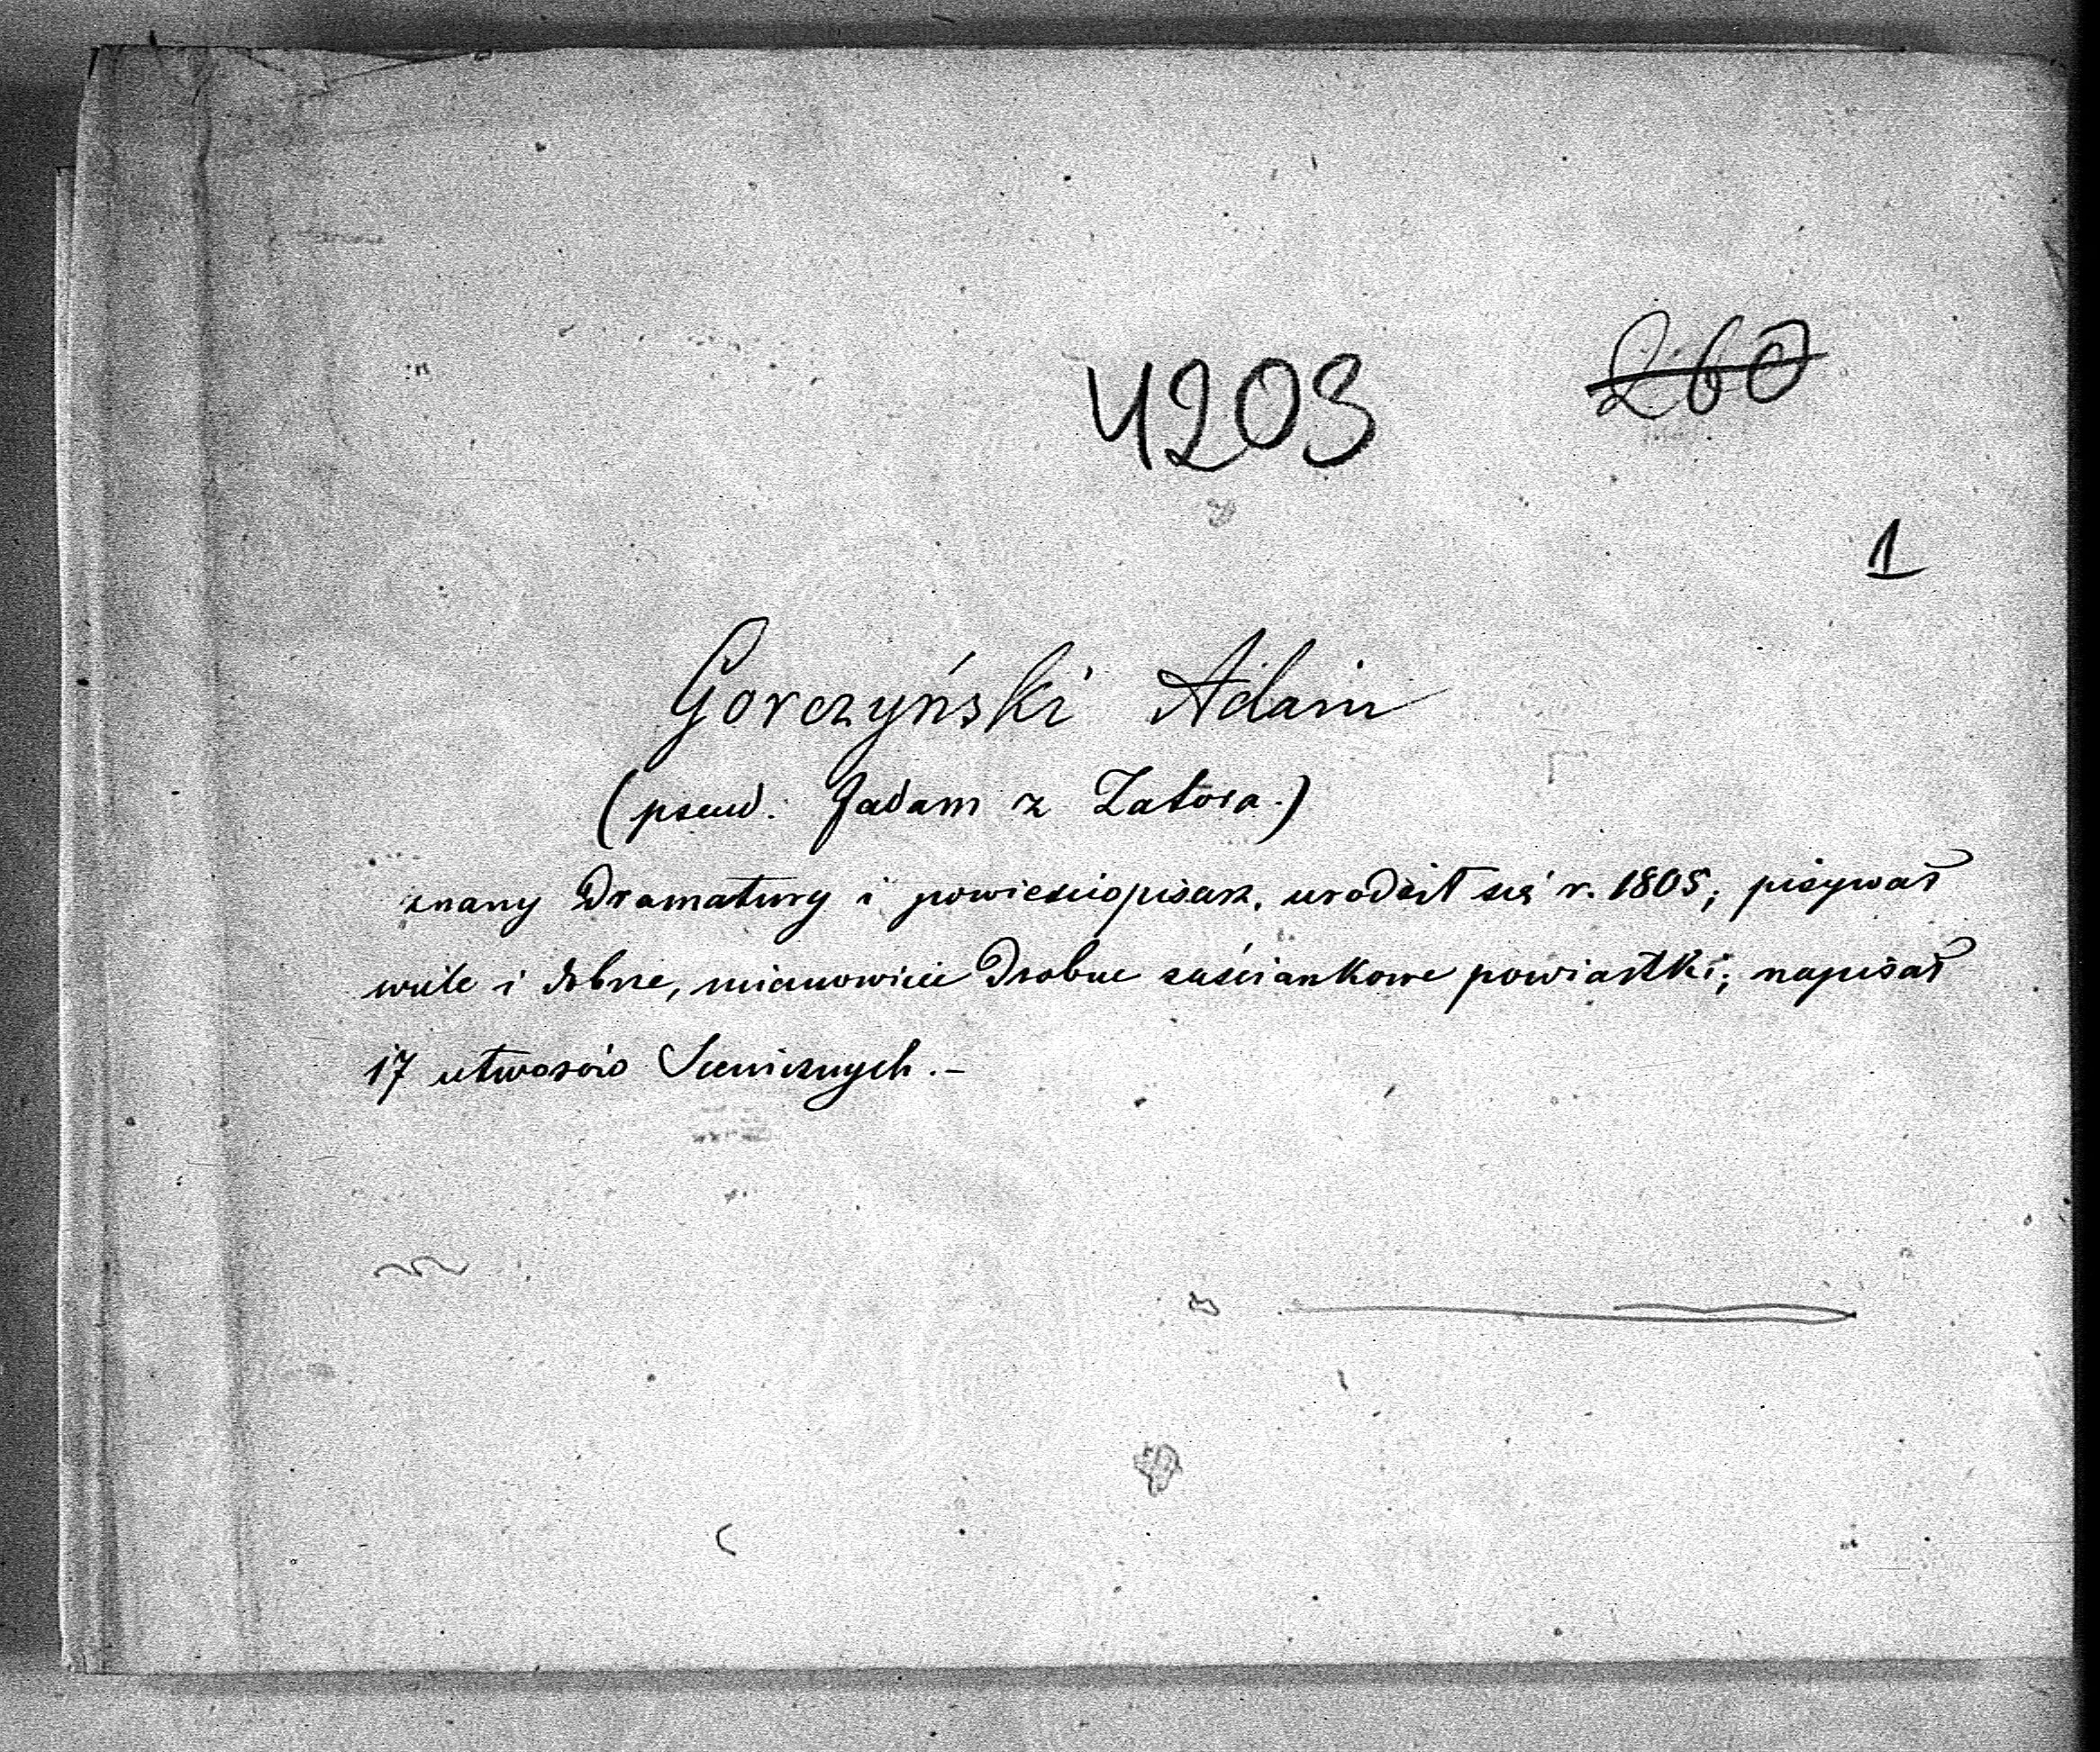 4203 260
1
Gorczyński Adam
(pseud. Jadam z Zatora.)
znany Dramaturg i powieściopisarz, urodził się r. 1805; pisywał
wiele i dobrze, mianowicie Drobne zaściankowe powiastki; napisał
17 utworów Scenicznych.-